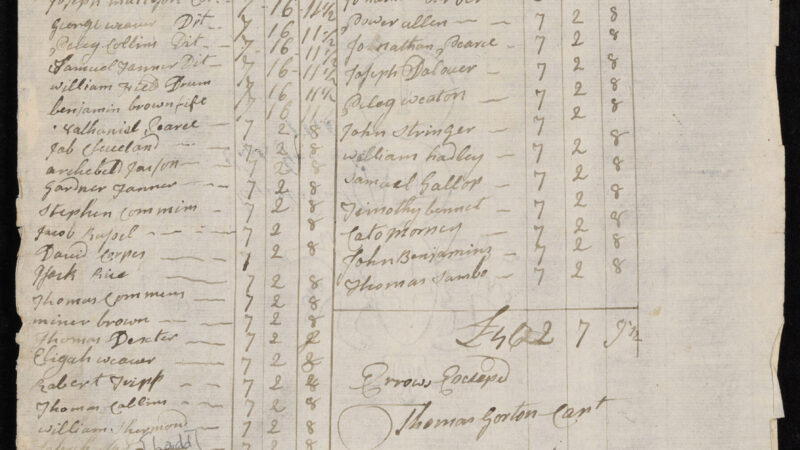 George weaver Dit 7 16 11½
Peleg Collins Dit 7 16 11½
Samuel Tanner Dit 7 16 11½
William Drum 7 16 11½
benjamin brown fife 7 16
Nathaniel Pearce 7 2 8
Job Cleveland 7 2 8
archebeld 7 2 8
Gardner Tanner 7 2 8
Stephen Commins 7 2 8
Jacob 7 2 8
David Corpes 7 2 8
Rice 7 2 8
Thomas Commens 7 2 8
miner brown 7 2 8
Thomas Dexter 7 2 8
Eligah weaver 7 2 8
Robert Tripp 7 2 8
Thomas Collins 7 2 8
William 7 2 8
Power allen 7 2 8
Johnathan Pearce 7 2 8
Joseph 7 2 8
Peleg weaton 7 2 8
John Stringer 7 2 8
William hadley 7 2 8
Samuel Gallop 7 2 8
Timothy bennet 7 2 8
Cato 7 2 8
John Benjamins 7 2 8
Thomas Sambo 7 2 8
£462 7 9½
Errows Excepd
Thomas Gorton Capt